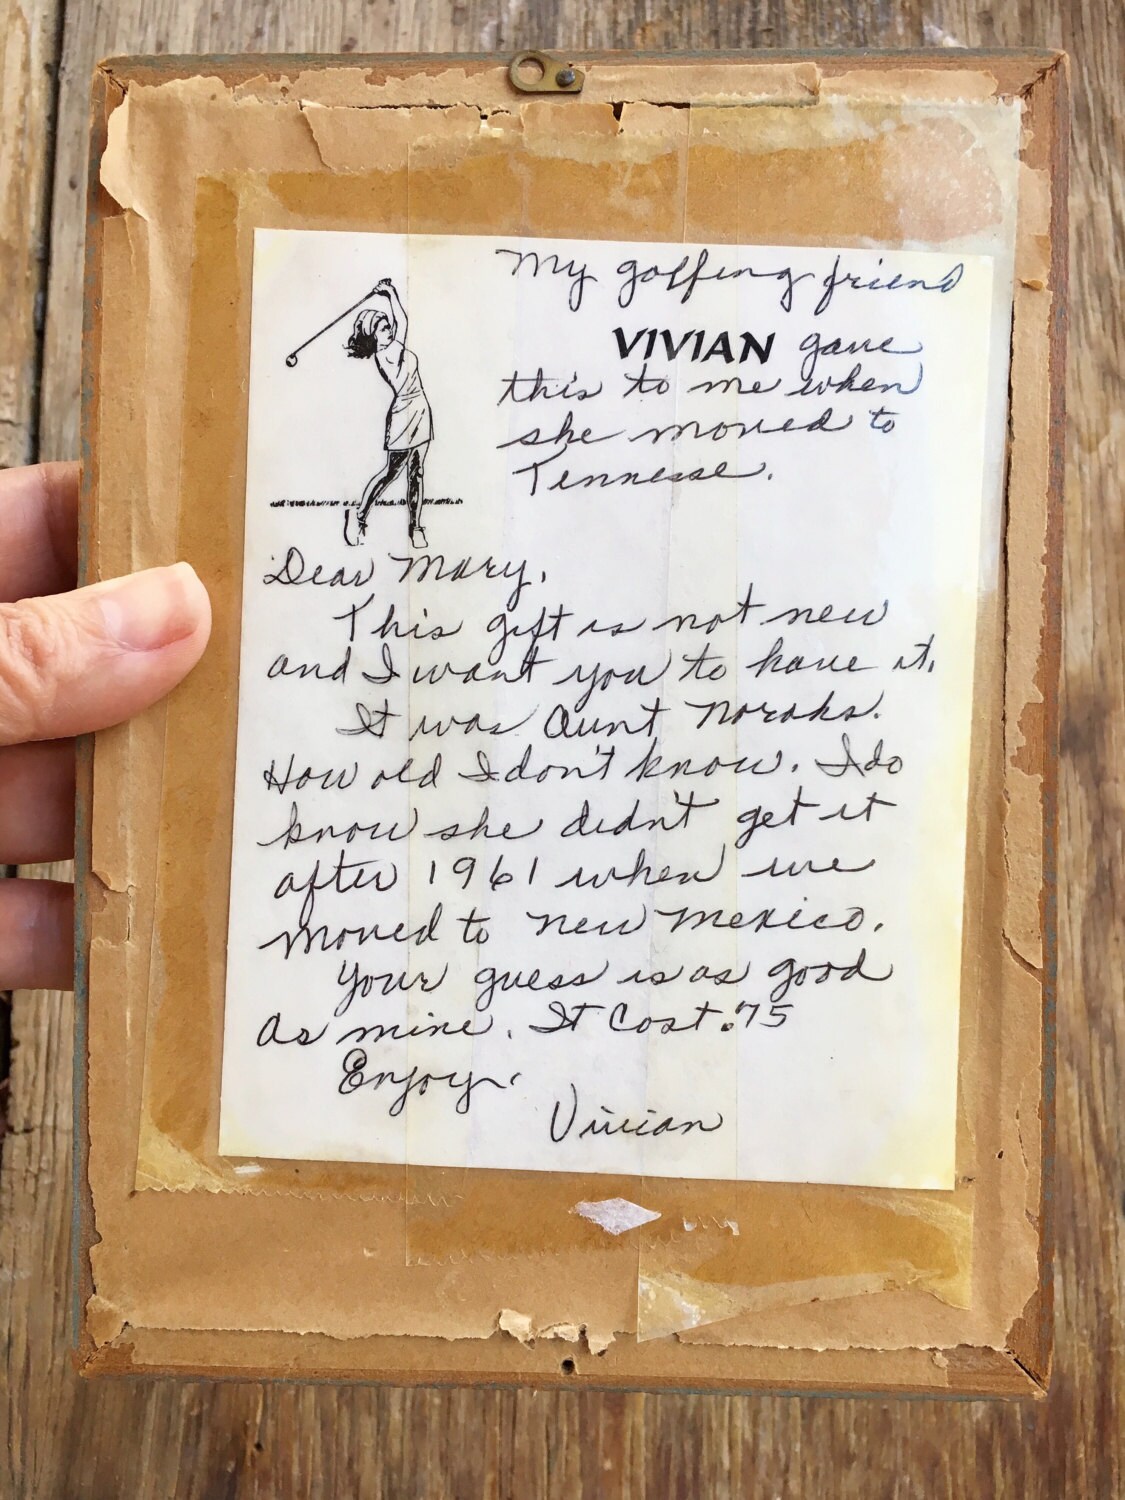 My golfing friend
VIVIAN gave
this to me when
she moved to
Tennesse.
Dear Mary,
This gift is not new
and I want you to have it.
It was Aunt Norahs.
How old I don't know. I do
know she didn't get it
after 1961 when we
moved to New Mexico.
Your guess is as good
as mine. It Cost .75
Enjoy.
Vivian